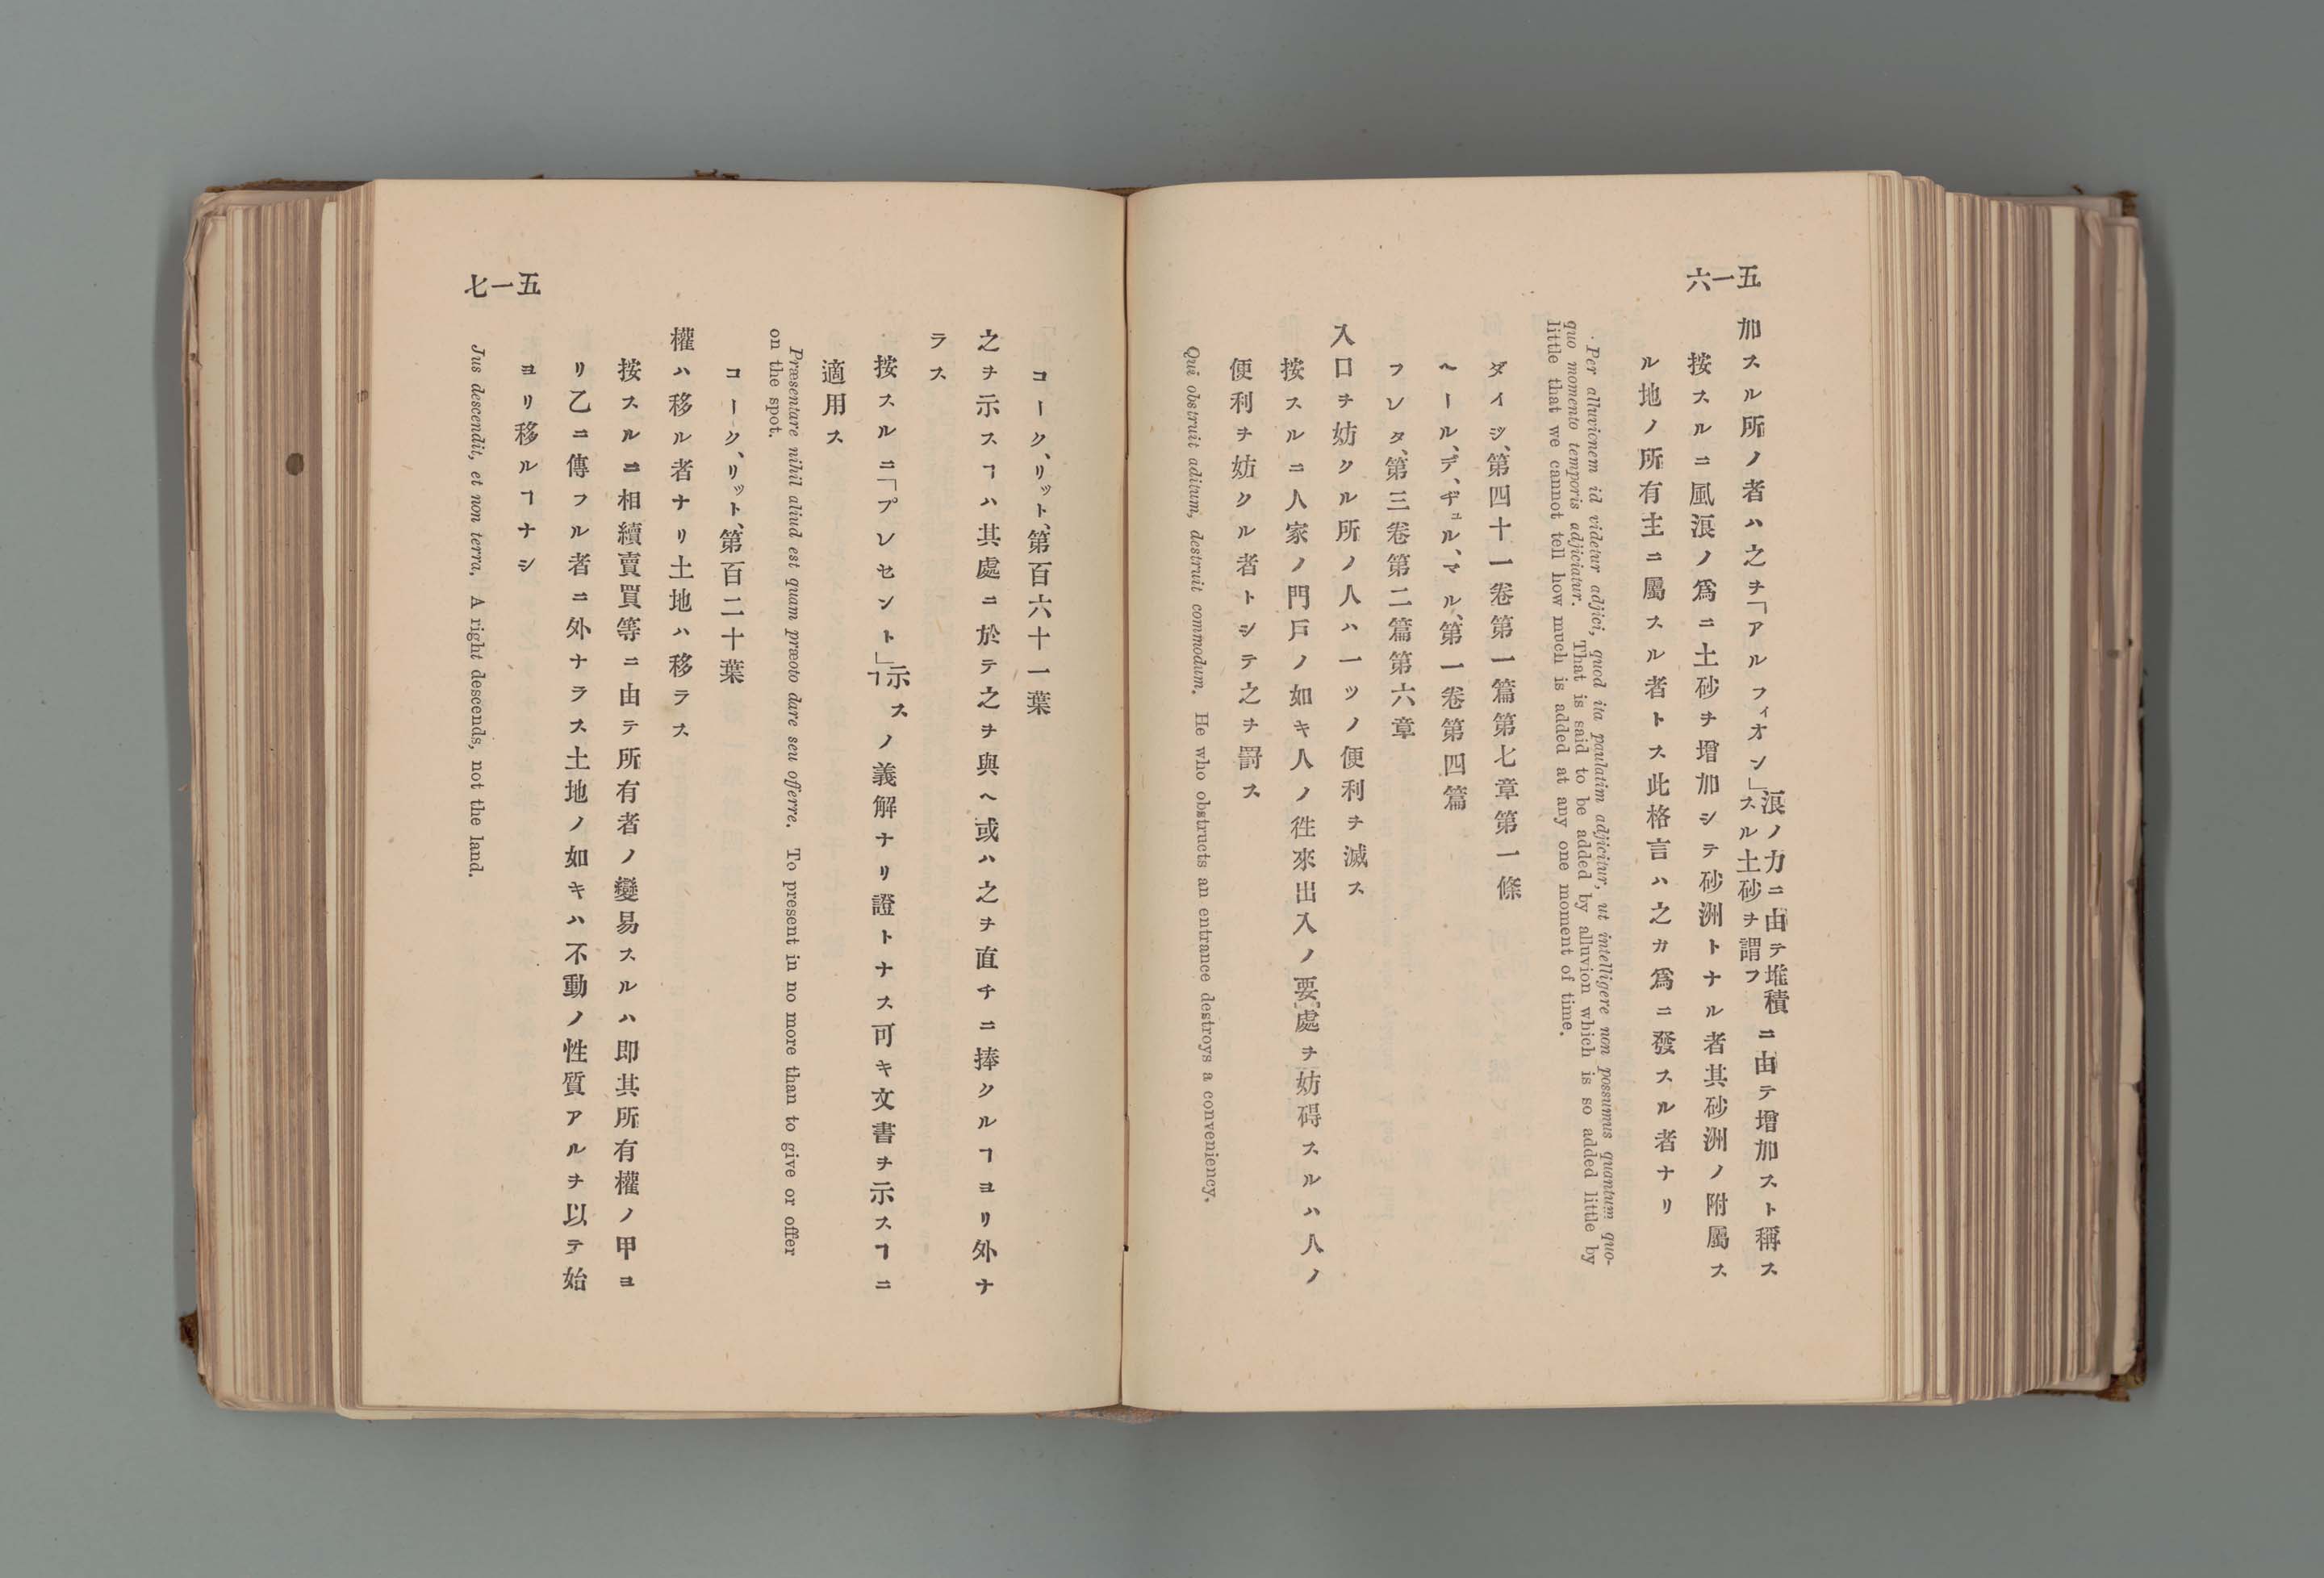 五一六
加スル所ノ者ハ之ヲ「アルフィオン」浪ノ力ニ由テ堆積スル土砂ヲ謂フニ由テ増加スト稱ス
按スルニ風浪ノ爲ニ土砂ヲ増加シテ砂洲トナル者其砂洲ノ附屬ス
ル地ノ所有主ニ屬スル者トス此格言ハ之カ爲ニ發スル者ナリ
Per alluvionem id videtur adjici, quod ita paulatim adjicitur, ut intelligere non possumus quantum quo-
quo momento temporis adjiciatur. That is said to be added by alluvion which is so added little by
little that we cannot tell how much is added at any one moment of time.
ダイジ、第四十一卷第一篇第七章第一條
ヘール、デ、ヂュル、マル、第一卷第四篇
フレタ、第三卷第二篇第六章
入口ヲ妨クル所ノ人ハ一ツノ便利ヲ滅ス
按スルニ人家ノ門戸ノ如キ人ノ徃來出入ノ要處ヲ妨碍スルハ人ノ
便利ヲ妨クル者トシテ之ヲ罰ス
Qui obstruit aditum, destruit commodum. He who obstructs an entrance destroys a conveniency.
コーク、リット、第百六十一葉
之ヲ示スヿハ其處ニ於テ之ヲ與ヘ或ハ之ヲ直チニ捧クルヿヨリ外ナ
ラス
按スルニ「プレセント」示スヿノ義解ナリ證トナス可キ文書ヲ示スヿニ
適用ス
Præsentare nihil aliud est quam præoto dare seu offerre. To present in no more than to give or offer
on the spot.
コーク、リット、第百二十葉
權ハ移ル者ナリ土地ハ移ラス
按スルニ相續賣買等ニ由テ所有者ノ變易スルハ即其所有權ノ甲ヨ
リ乙ニ傳フル者ニ外ナラス土地ノ如キハ不動ノ性質アルヲ以テ始
ヨリ移ルヿナシ
Jus descendit, et non terra. A right descends, not the land.
五一七